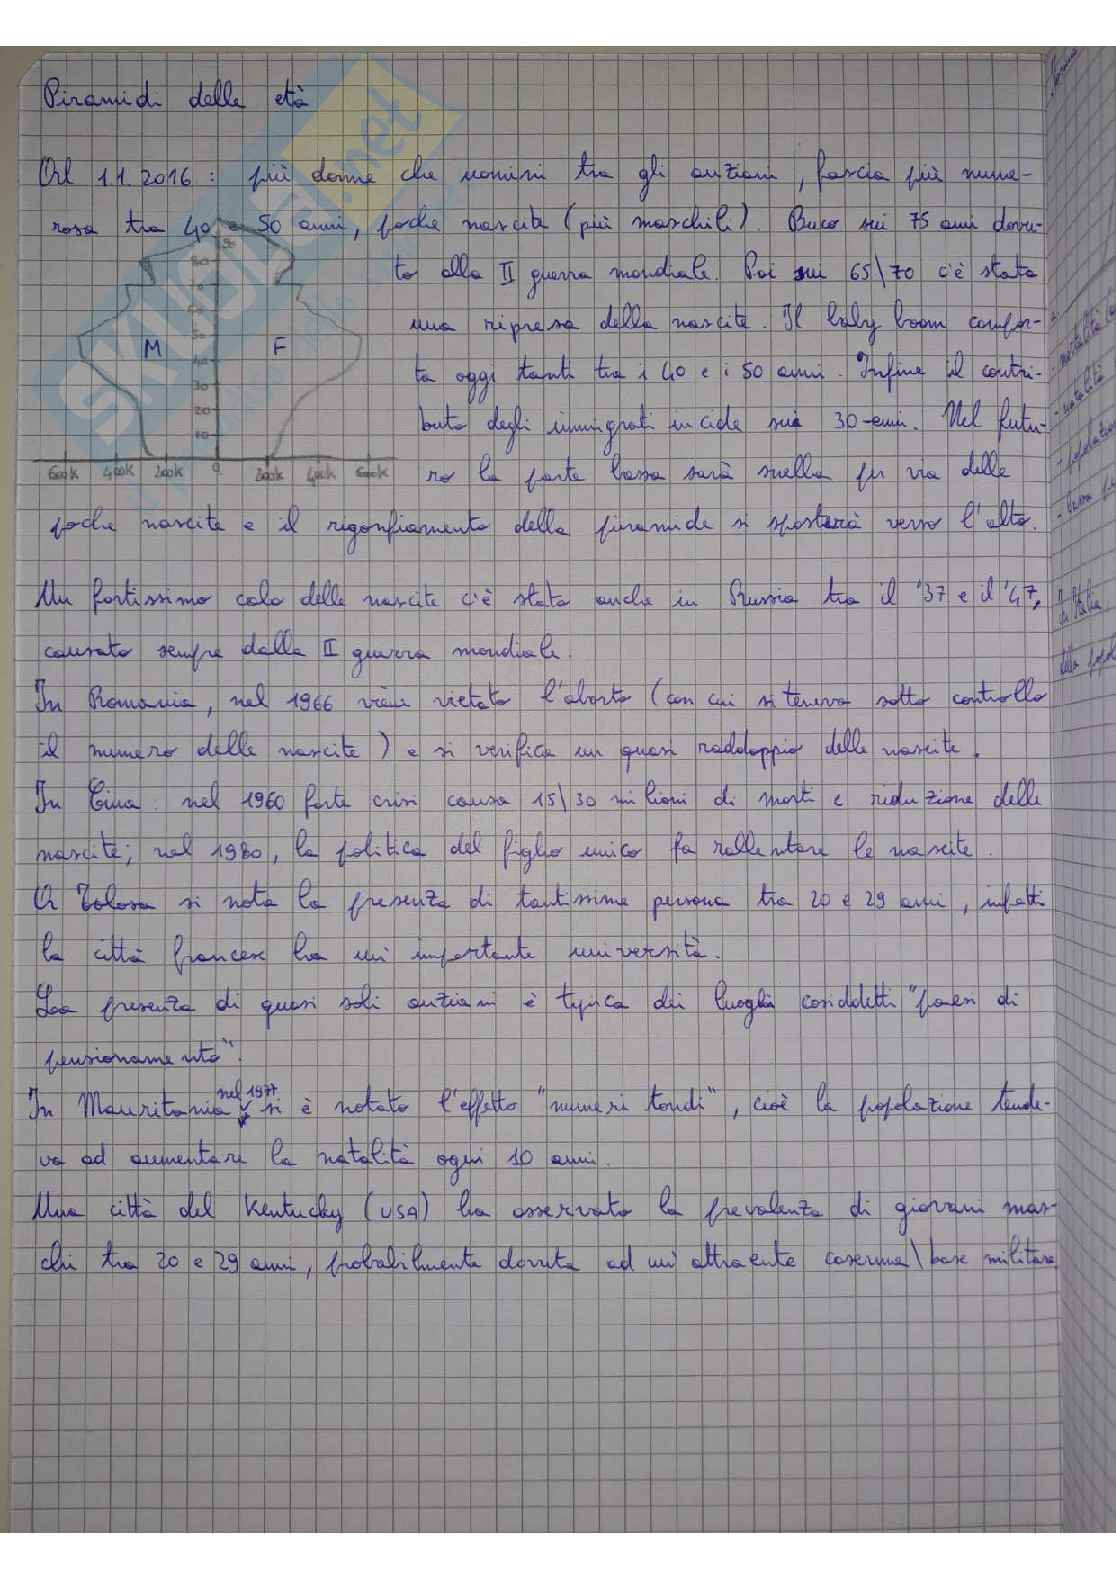 Piramidi delle età
Al 1.1.2016: più donne che uomini tra gli anziani, fascia più nume-
rosa tra 40 e 50 anni, poche nascite (più maschili). Buco sui 75 anni dovu-
to alla II guerra mondiale. Poi sui 65\70 c'è stata
una ripresa delle nascite. Il baby boom compor-
ta oggi tanti tra i 40 e i 50 anni. Infine il contri-
buto degli immigrati incide sui 30-enni. Nel futu-
ro la parte bassa sarà snella per via delle
poche nascite e il rigonfiamento della piramide si sposterà verso l'alto.
90
80
70
60
50
M
F
40
30
20
10
600k 400k 200k 0 200k 400k 600k
Un fortissimo calo delle nascite c'è stato anche in Russia tra il '37 e il '47,
causato sempre dalla II guerra mondiale.
In Romania, nel 1966 viene vietato l'aborto (con cui si teneva sotto controllo
il numero delle nascite) e si verifica un quasi raddoppio delle nascite.
In Cina: nel 1960 forte crisi causa 15\30 milioni di morti e riduzione delle
nascite; nel 1980, la politica del figlio unico fa rallentare le nascite.
A Tolosa si nota la presenza di tantissime persone tra 20 e 29 anni, infatti
la città francese ha un'importante università.
La presenza di quasi soli anziani è tipica dei luoghi cosiddetti "paesi di
pensionamento".
In Mauritania nel 1977 si è notato l'effetto "numeri tondi", cioè la popolazione tende-
va ad aumentare la natalità ogni 10 anni.
Una città del Kentucky (USA) ha osservato la prevalenza di giovani mas-
chi tra 20 e 29 anni, probabilmente dovuta ad un'attraente caserma\base militare
- mortalità
- natalità
- popolazion
- bassa
In Italia
della popol
SKUOLA.net